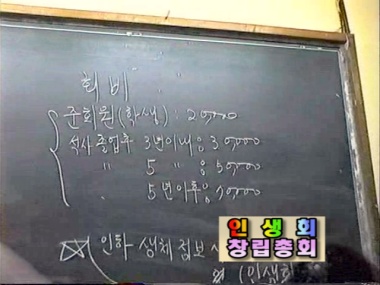 회비
준회원(학생) : 20,000
석사 졸업후 3년이내 : 30,000
〃 5 〃 : 50,000
〃 5년이후 :
인하 생체 정보
(인생회
인생회
창립총회